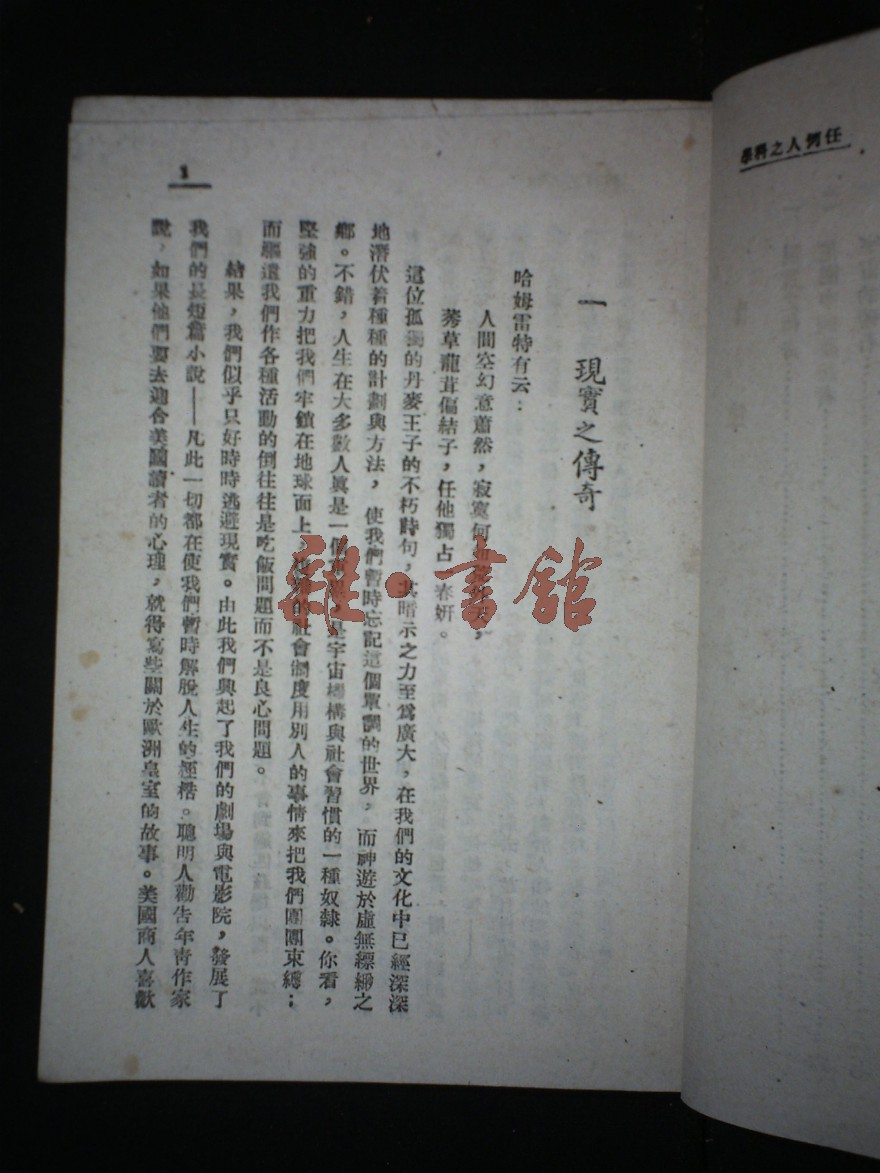 任何人之科學
1
一 現實之傳奇
哈姆雷特有云：
人間空幻意蕭然，寂寞何
莠草龍茸偏結子，任他獨占一春妍。
這位孤獨的丹麥王子的不朽詩句，其暗示之力至爲廣大，在我們的文化中已經深深
地潛伏着種種的計劃與方法，使我們暫時忘記這個單調的世界，而神遊於虛無縹緲之
鄉。不錯，人生在大多數人眞是一個，是宇宙機構與社會習慣的一種奴隸。你看，
堅強的重力把我們牢鎖在地球面上，的社會制度用別人的事情來把我們團團束縛；
而驅遣我們作各種活動的倒往往是吃飯問題而不是良心問題。
結果，我們似乎只好時時逃避現實。由此我們興起了我們的劇場與電影院，發展了
我們的長短篇小說——凡此一切都在使我們暫時解脫人生的桎梏。聰明人勸告年靑作家
說，如果他們要去迎合美國讀者的心理，就得寫些關於歐洲皇室的故事。美國商人喜歡
雜·書館